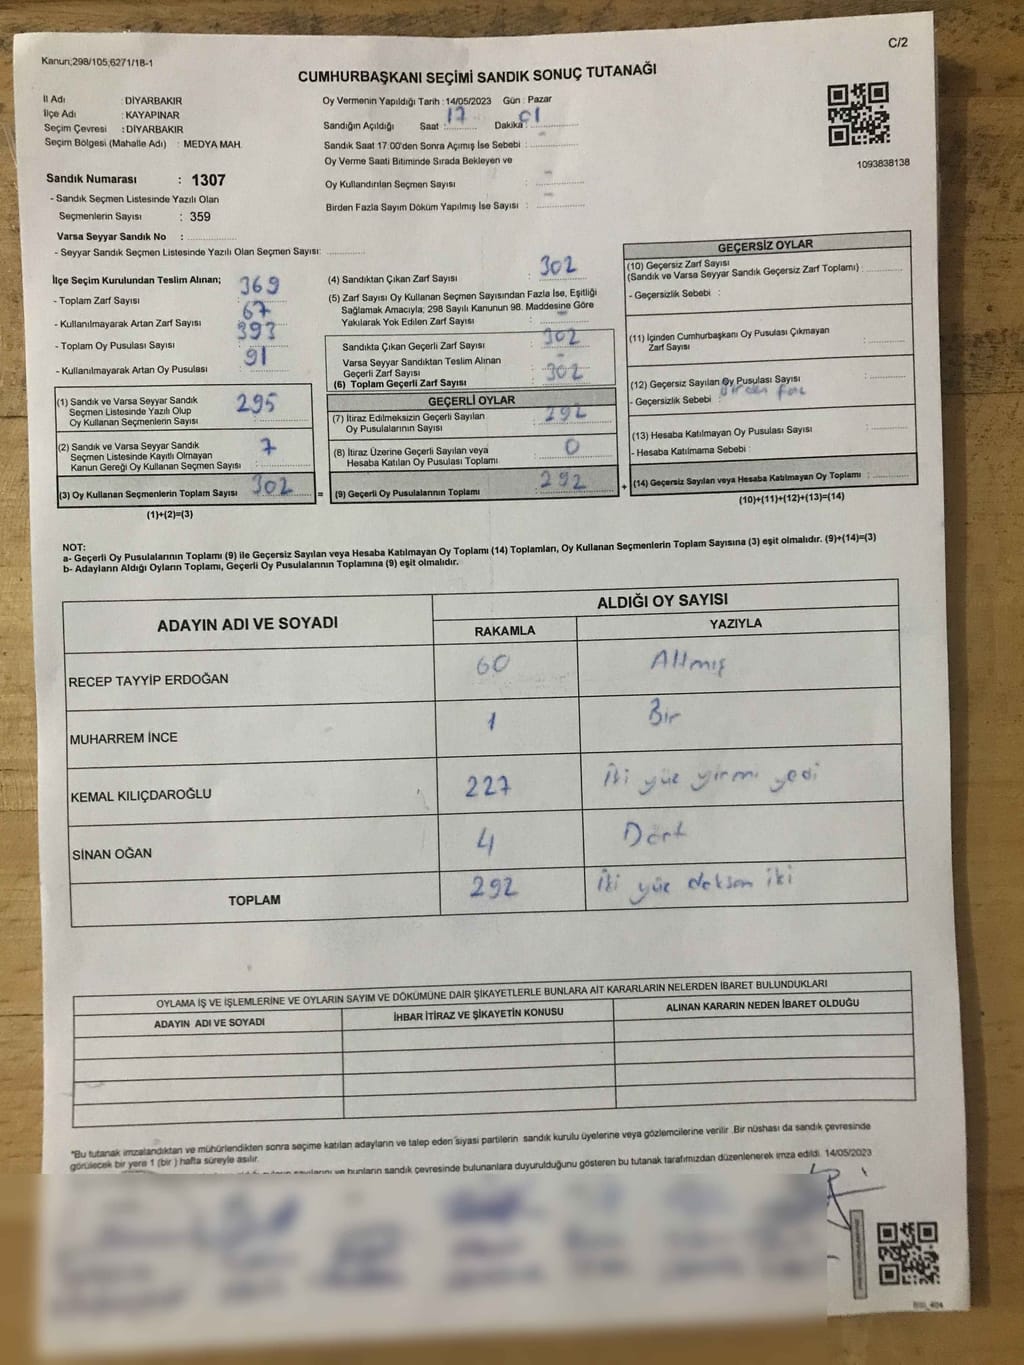 C/2
Kanun;298/105;6271/18-1
CUMHURBAŞKANI SEÇİMİ SANDIK SONUÇ TUTANAĞI
İl Adı : DİYARBAKIR
İlçe Adı : KAYAPINAR
Seçim Çevresi : DİYARBAKIR
Seçim Bölgesi (Mahalle Adı) : MEDYA MAH.
Sandık Numarası : 1307
- Sandık Seçmen Listesinde Yazılı Olan
Seçmenlerin Sayısı : 359
Varsa Seyyar Sandık No :
- Seyyar Sandık Seçmen Listesinde Yazılı Olan Seçmen Sayısı:
Oy Vermenin Yapıldığı Tarih : 14/05/2023 Gün : Pazar
Sandığın Açıldığı Saat : 17 Dakika : 01
Sandık Saat 17:00'den Sonra Açımış İse Sebebi :
Oy Verme Saati Bitiminde Sırada Bekleyen ve
Oy Kullandırılan Seçmen Sayısı : -
Birden Fazla Sayım Döküm Yapılmış İse Sayısı : -
1093838138
İlçe Seçim Kurulundan Teslim Alınan;
- Toplam Zarf Sayısı : 369
- Kullanılmayarak Artan Zarf Sayısı : 67
- Toplam Oy Pusulası Sayısı : 393
- Kullanılmayarak Artan Oy Pusulası : 91
(1) Sandık ve Varsa Seyyar Sandık
Seçmen Listesinde Yazılı Olup
Oy Kullanan Seçmenlerin Sayısı : 295
(2) Sandık ve Varsa Seyyar Sandık
Seçmen Listesinde Kayıtlı Olmayan
Kanun Gereği Oy Kullanan Seçmen Sayısı : 7
(3) Oy Kullanan Seçmenlerin Toplam Sayısı : 302
(1)+(2)=(3)
(4) Sandıktan Çıkan Zarf Sayısı : 302
(5) Zarf Sayısı Oy Kullanan Seçmen Sayısından Fazla İse, Eşitliği
Sağlamak Amacıyla; 298 Sayılı Kanunun 98. Maddesine Göre
Yakılarak Yok Edilen Zarf Sayısı : -
Sandıkta Çıkan Geçerli Zarf Sayısı : 302
Varsa Seyyar Sandıktan Teslim Alınan
Geçerli Zarf Sayısı : -
(6) Toplam Geçerli Zarf Sayısı : 302
GEÇERLİ OYLAR
(7) İtiraz Edilmeksizin Geçerli Sayılan
Oy Pusulalarının Sayısı : 292
(8) İtiraz Üzerine Geçerli Sayılan veya
Hesaba Katılan Oy Pusulası Toplamı : 0
= (9) Geçerli Oy Pusulalarının Toplamı : 292
GEÇERSİZ OYLAR
(10) Geçersiz Zarf Sayısı
(Sandık ve Varsa Seyyar Sandık Geçersiz Zarf Toplamı) :
- Geçersizlik Sebebi :
(11) İçinden Cumhurbaşkanı Oy Pusulası Çıkmayan
Zarf Sayısı :
(12) Geçersiz Sayılan Oy Pusulası Sayısı :
- Geçersizlik Sebebi : Birden
(13) Hesaba Katılmayan Oy Pusulası Sayısı :
- Hesaba Katılmama Sebebi :
+ (14) Geçersiz Sayılan veya Hesaba Katılmayan Oy Toplamı :
(10)+(11)+(12)+(13)=(14)
NOT:
a- Geçerli Oy Pusulalarının Toplamı (9) ile Geçersiz Sayılan veya Hesaba Katılmayan Oy Toplamı (14) Toplamları, Oy Kullanan Seçmenlerin Toplam Sayısına (3) eşit olmalıdır. (9)+(14)=(3)
b- Adayların Aldığı Oyların Toplamı, Geçerli Oy Pusulalarının Toplamına (9) eşit olmalıdır.
ADAYIN ADI VE SOYADI ALDIĞI OY SAYISI
RAKAMLA YAZIYLA
RECEP TAYYİP ERDOĞAN 60 Altmış
MUHARREM İNCE 1 Bir
KEMAL KILIÇDAROĞLU 227 İki yüz yirmi yedi
SİNAN OĞAN 4 Dört
TOPLAM 292 İki yüz doksan iki
OYLAMA İŞ VE İŞLEMLERİNE VE OYLARIN SAYIM VE DÖKÜMÜNE DAİR ŞİKAYETLERLE BUNLARA AİT KARARLARIN NELERDEN İBARET BULUNDUKLARI
ADAYIN ADI VE SOYADI İHBAR İTİRAZ VE ŞİKAYETİN KONUSU ALINAN KARARIN NEDEN İBARET OLDUĞU
"Bu tutanak imzalandıktan ve mühürlendikten sonra seçime katılan adayların ve talep eden siyasi partilerin sandık kurulu üyelerine veya gözlemcilerine verilir .Bir nüshası da sandık çevresinde
görülecek bir yere 1 (bir ) hafta süreyle asılır.
sayılarını ve bunların sandık çevresinde bulunanlara duyurulduğunu gösteren bu tutanak tarafımızdan düzenlenerek imza edildi. 14/05/2023